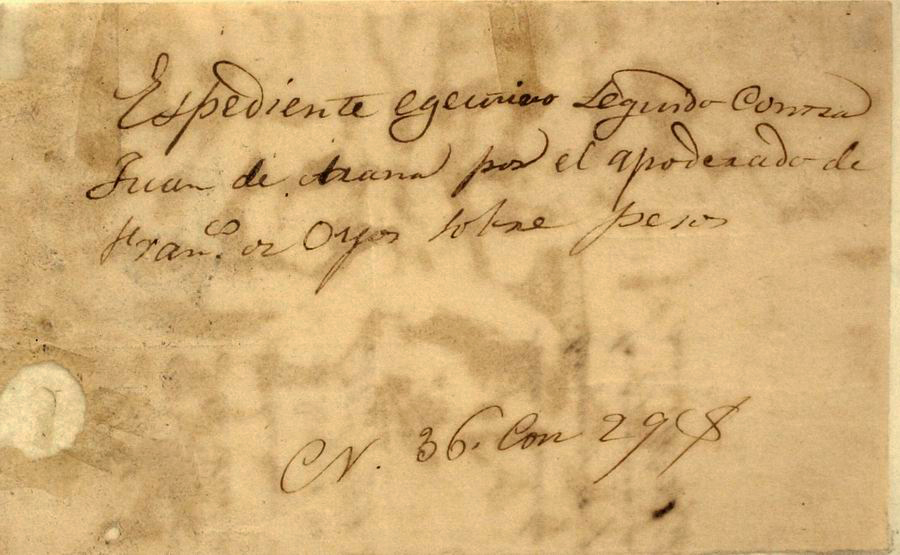 Espediente egecutivo Seguido Contra
Juan de Arana por el apoderado de
Fran.co de Oyos sobre pesos
N. 36. Con 29